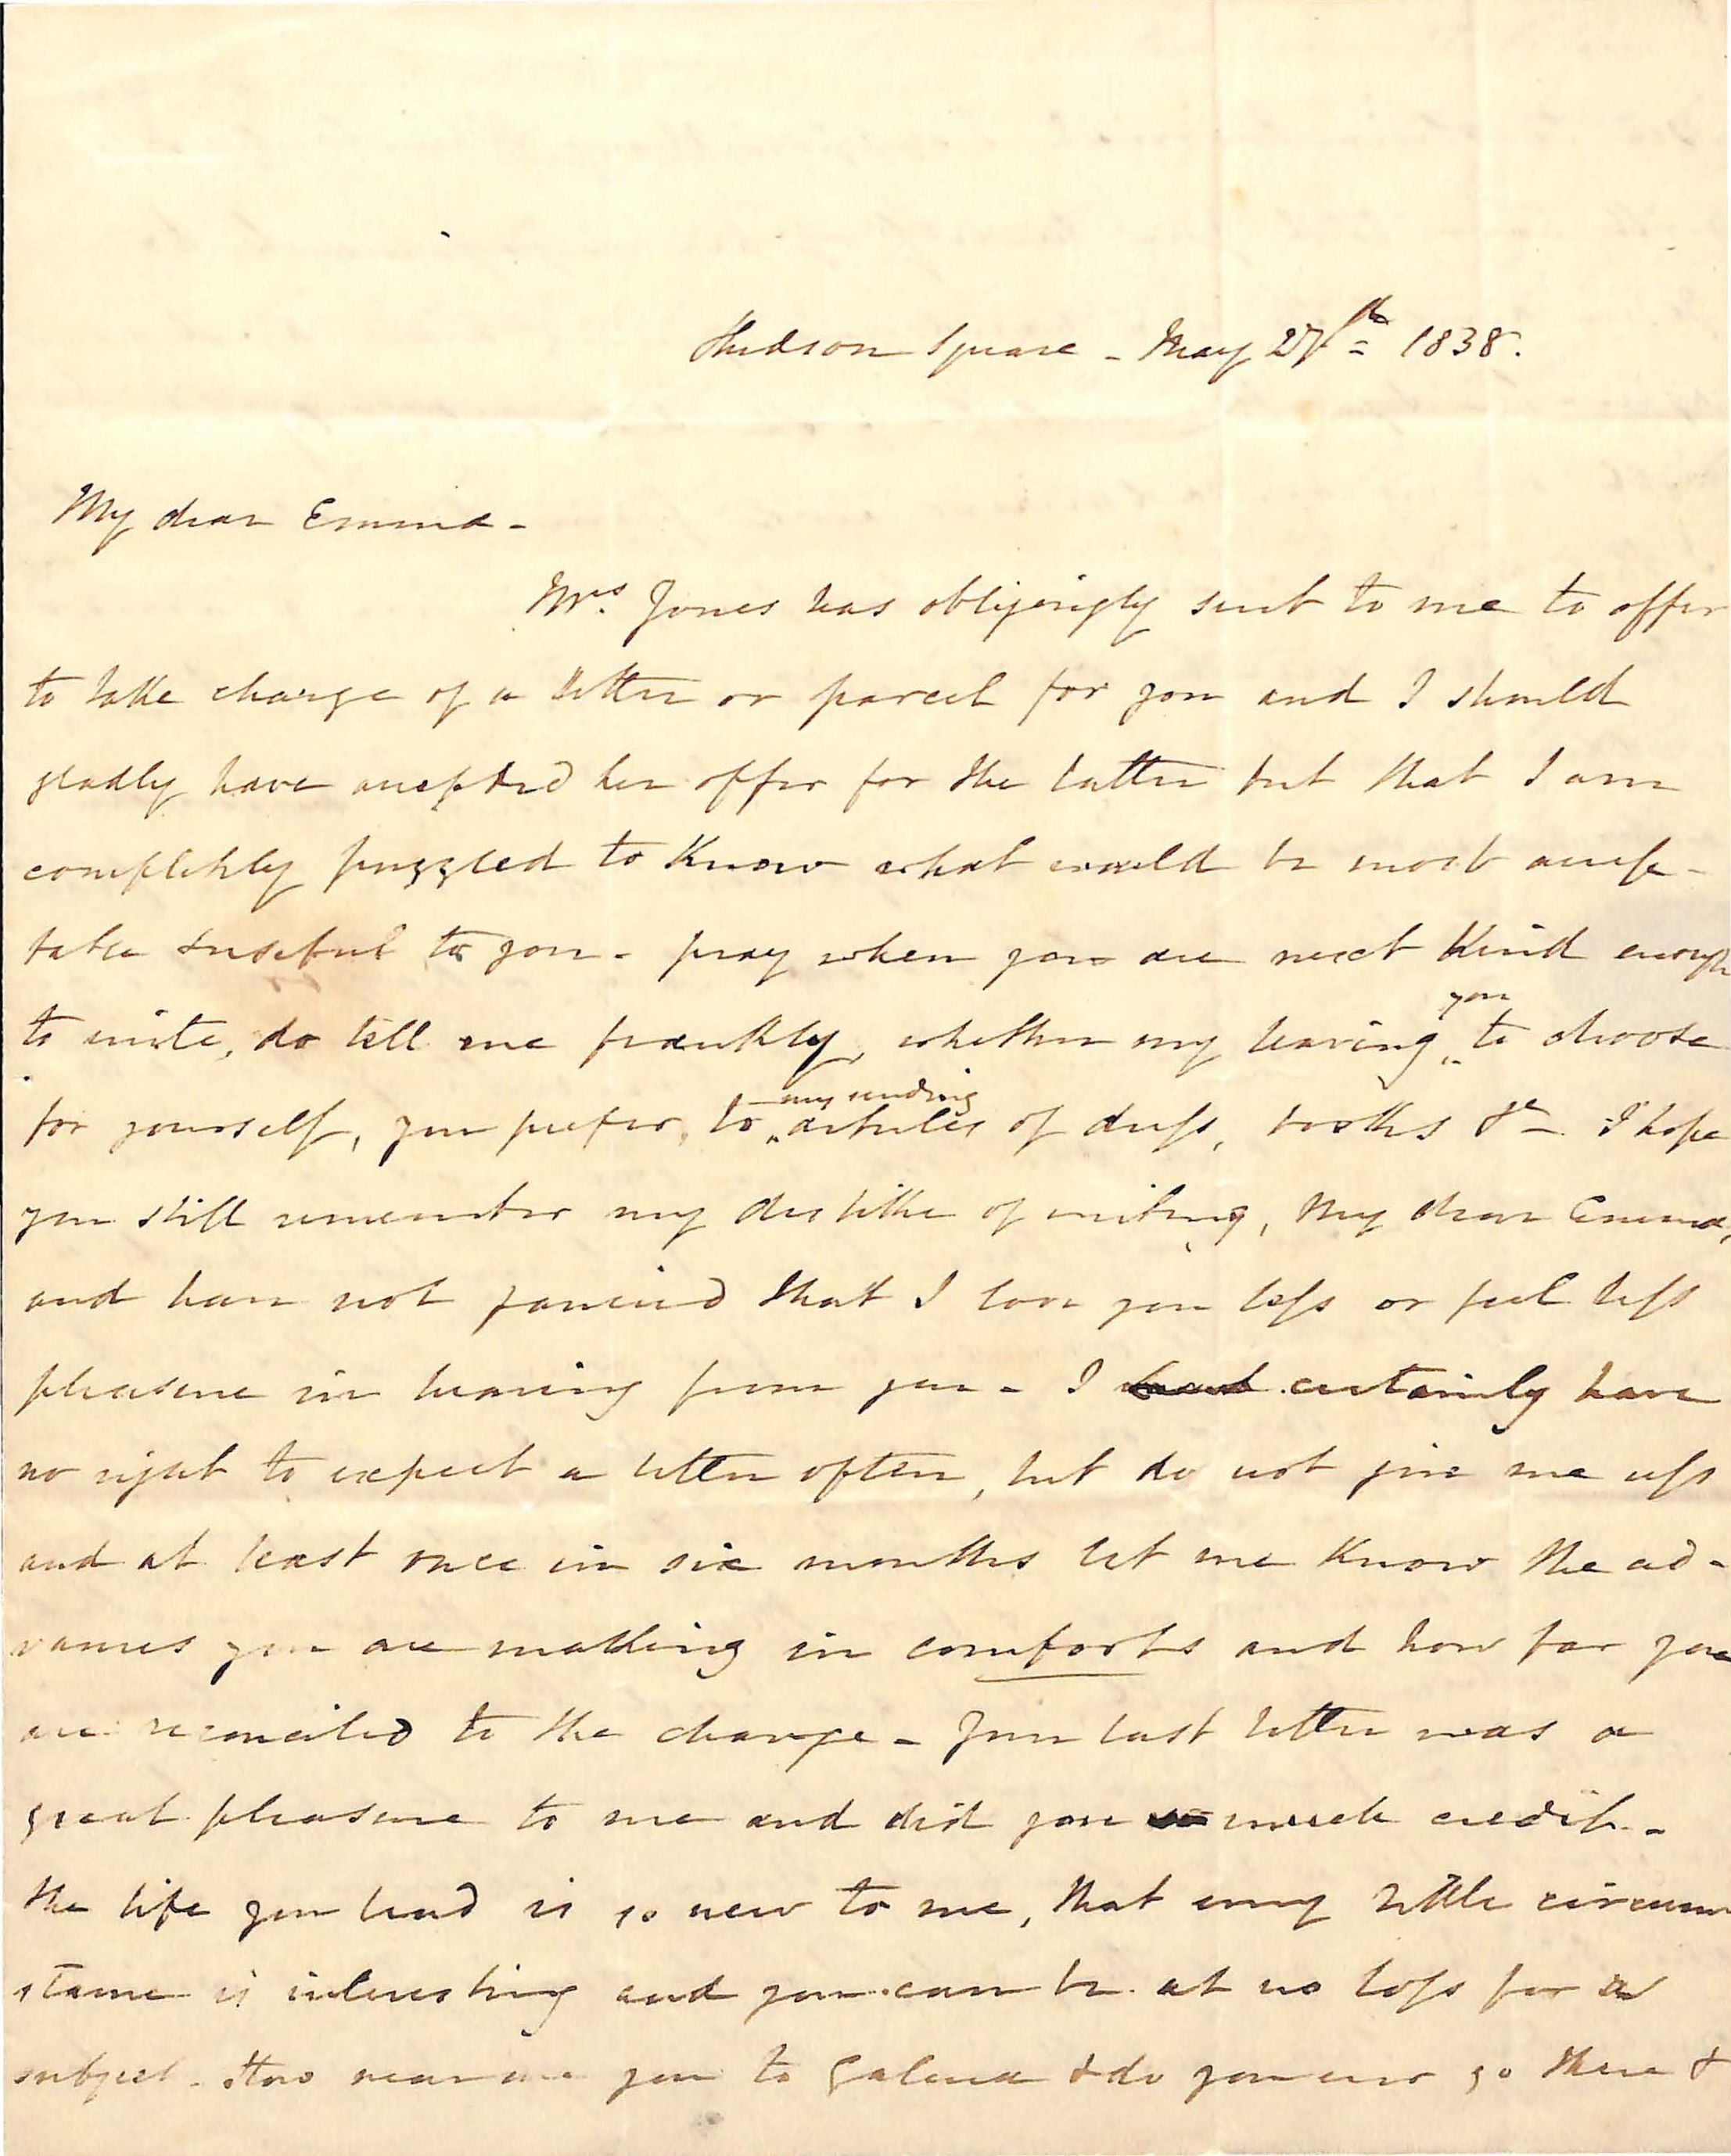 Hudson Square - May 27th = 1838.
My dear Emma -
Mrs. Jones has obligingly sent to me to offer
to take charge of a letter or parcel for you and I should
gladly have accepted her offer for the latter but that I am
completely puzzled to know what would be most accep-
table & useful to you - pray when you are next kind enough
to write, do tell me frankly, whether my leaving you to choose
for yourself, you prefer, to my sending articles of dress, books &c - I hope
you still remember my dislike of writing, My dear Emma,
and have not fancied that I love you less or feel less
pleasure in hearing from you - I certainly have
no right to expect a letter often, but do not give me up
and at least once in six months let me know the ad-
vances you are making in comforts and how far you
are reconciled to the change - Your last letter was a
great pleasure to me and did you much credit -
the life you lead is so new to me, that every little circum
stance is interesting and you can be at no loss for a
subject - How near are you to Galena & do you ever go there &